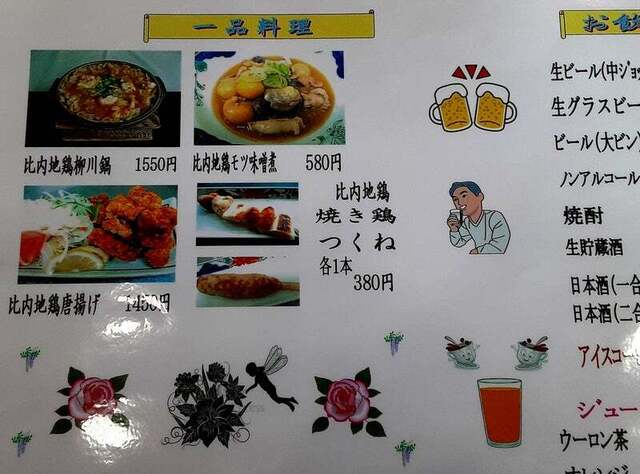 一品料理
比内地鶏柳川鍋 1550円
比内地鶏モツ味噌煮 580円
比内地鶏唐揚げ 1450円
比内地鶏
焼き鶏
つくね
各1本
380円
お飲
生ビール(中ジョッ
生グラスビー
ビール(大ビン)
ノンアルコール
焼酎
生貯蔵酒
日本酒(一合
日本酒(二合
アイスコー
ジュー
ウーロン茶
オレンジ